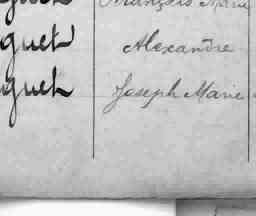 François Marie
guet Alexandre
guet Joseph Marie